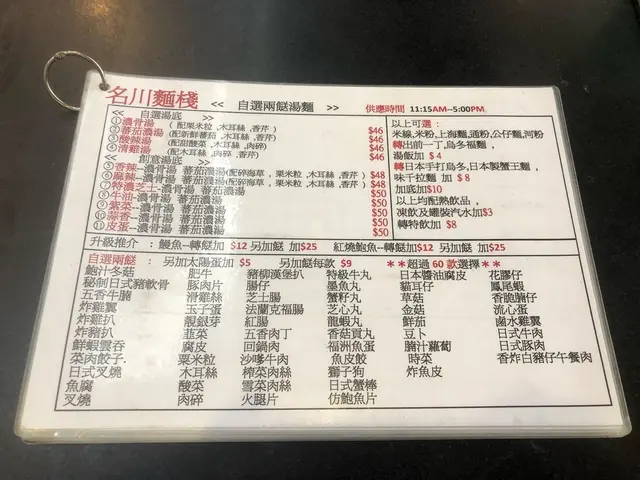 名川麵棧 << 自選兩餸湯麵 >> 供應時間 11:15AM--5:00PM
<< 自選湯底 >>
①濃骨湯 (配粟米粒,木耳絲,香芹) $46
②蕃茄濃湯 (配新鮮蕃茄,木耳絲,香芹) $46
③酸辣湯 (配甜酸菜,木耳絲,肉碎) $46
④清雞湯 (配木耳絲,肉碎,香芹) $46
<< 創意湯底 >>
⑤香辣--濃骨湯 蕃茄濃湯(配碎海草,粟米粒,木耳絲,香芹) $48
⑥麻辣--濃骨湯 蕃茄濃湯(配碎海草,粟米粒,木耳絲,香芹) $48
⑦特濃芝士-濃骨湯 蕃茄濃湯 $50
⑧牛油-濃骨湯 蕃茄濃湯 $50
⑨紫菜--濃骨湯 蕃茄濃湯 $50
⑩蒜香--濃骨湯 蕃茄濃湯 $50
⑪皮蛋--濃骨湯 蕃茄濃湯 $50
以上可選:
米線,米粉,上海麵,通粉,公仔麵,河粉
轉出前一丁,烏冬福麵,
湯飯加 $4
轉日本手打烏冬,日本製蟹王麵,
味千拉麵 加 $8
加底加$10
以上均配熱飲品,
凍飲及罐裝汽水加$3
轉特飲加 $8
升級推介 : 鰻魚--轉餸加 $12 另加餸 加$25 紅燒鮑魚--轉餸加$12 另加餸 加$25
自選兩餸: 另加太陽蛋加 $5 另加餸每款 $9 **超過 60 款選擇**
鮑汁冬菇 肥牛 豬柳漢堡扒 特級牛丸 日本醬油腐皮 花膠仔
秘制日式豬軟骨 豚肉片 腸仔 墨魚丸 貓耳仔 鳳尾蝦
五香牛腩 滑雞絲 芝士腸 蟹籽丸 草菇 香脆腩仔
炸雞翼 玉子蛋 法蘭克福腸 芝心丸 金菇 流心蛋
炸雞扒 靚銀芽 紅腸 龍蝦丸 鮮茄 鹵水雞翼
炸豬扒 韭菜 五香肉丁 香菇貢丸 豆卜 日式牛肉
鮮蝦雲吞 腐皮 回鍋肉 福洲魚蛋 腩汁蘿蔔 日式豚肉
菜肉餃子 粟米粒 沙嗲牛肉 魚皮餃 時菜 香炸白豬仔午餐肉
日式叉燒 木耳絲 榨菜肉絲 獅子狗 炸魚皮
魚腐 酸菜 雪菜肉絲 日式蟹棒
叉燒 肉碎 火腿片 仿鮑魚片